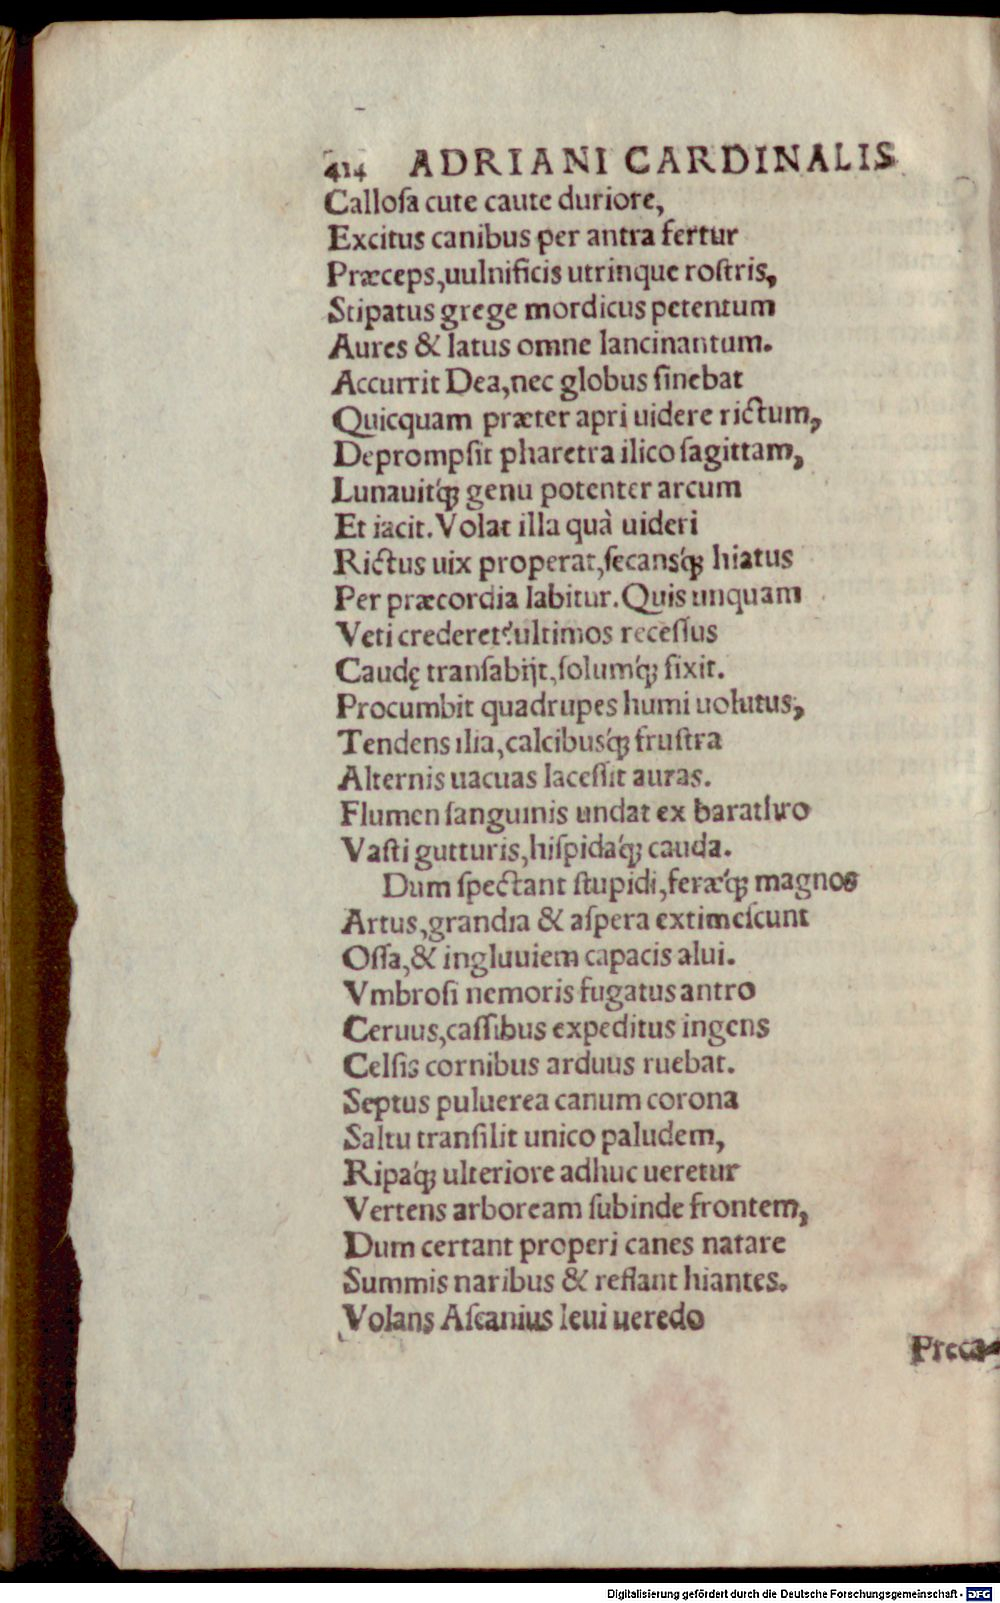 414 ADRIANI CARDINALIS
Calloſa cute caute duriore,
Excitus canibus per antra fertur
Præceps,uulnificis utrinque roſtris,
Stipatus grege mordicus petentum
Aures & latus omne lancinantum.
Accurrit Dea,nec globus ſinebat
Quicquam præter apri uidere rictum,
Depromꝑſit pharetra ilico ſagittam,
Lunauitq́; genu potenter arcum
Et iacit. Volat illa quà uideri
Rictus uix properat,ſecansq́; hiatus
Per præcordia labitur. Quis unquam
Veti crederet?ultimos receſſus
Caudę transabijt,ſolumq́; fixit.
Procumbit quadrupes humi uolutus,
Tendens ilia,calcibusq́; fruſtra
Alternis uacuas laceſſit auras.
Flumen ſanguinis undat ex barathro
Vaſti gutturis,hiſpidaq́; cauda.
Dum ſpectant ſtupidi,feræq́; magnos
Artus,grandia & aſpera extimeſcunt
Oſſa,& ingluuiem capacis alui.
Vmbroſi nemoris fugatus antro
Ceruus,caſſibus expeditus ingens
Celſis cornibus arduus ruebat.
Septus puluerea canum corona
Saltu tranſilit unico paludem,
Ripaq́; ulteriore adhuc ueretur
Vertens arboream ſubinde frontem,
Dum certant properi canes natare
Summis naribus & reflant hiantes.
Volans Aſcanius leui ueredo
Preca-
Digitalisierung gefördert durch die Deutsche Forschungsgemeinschaft - DFG